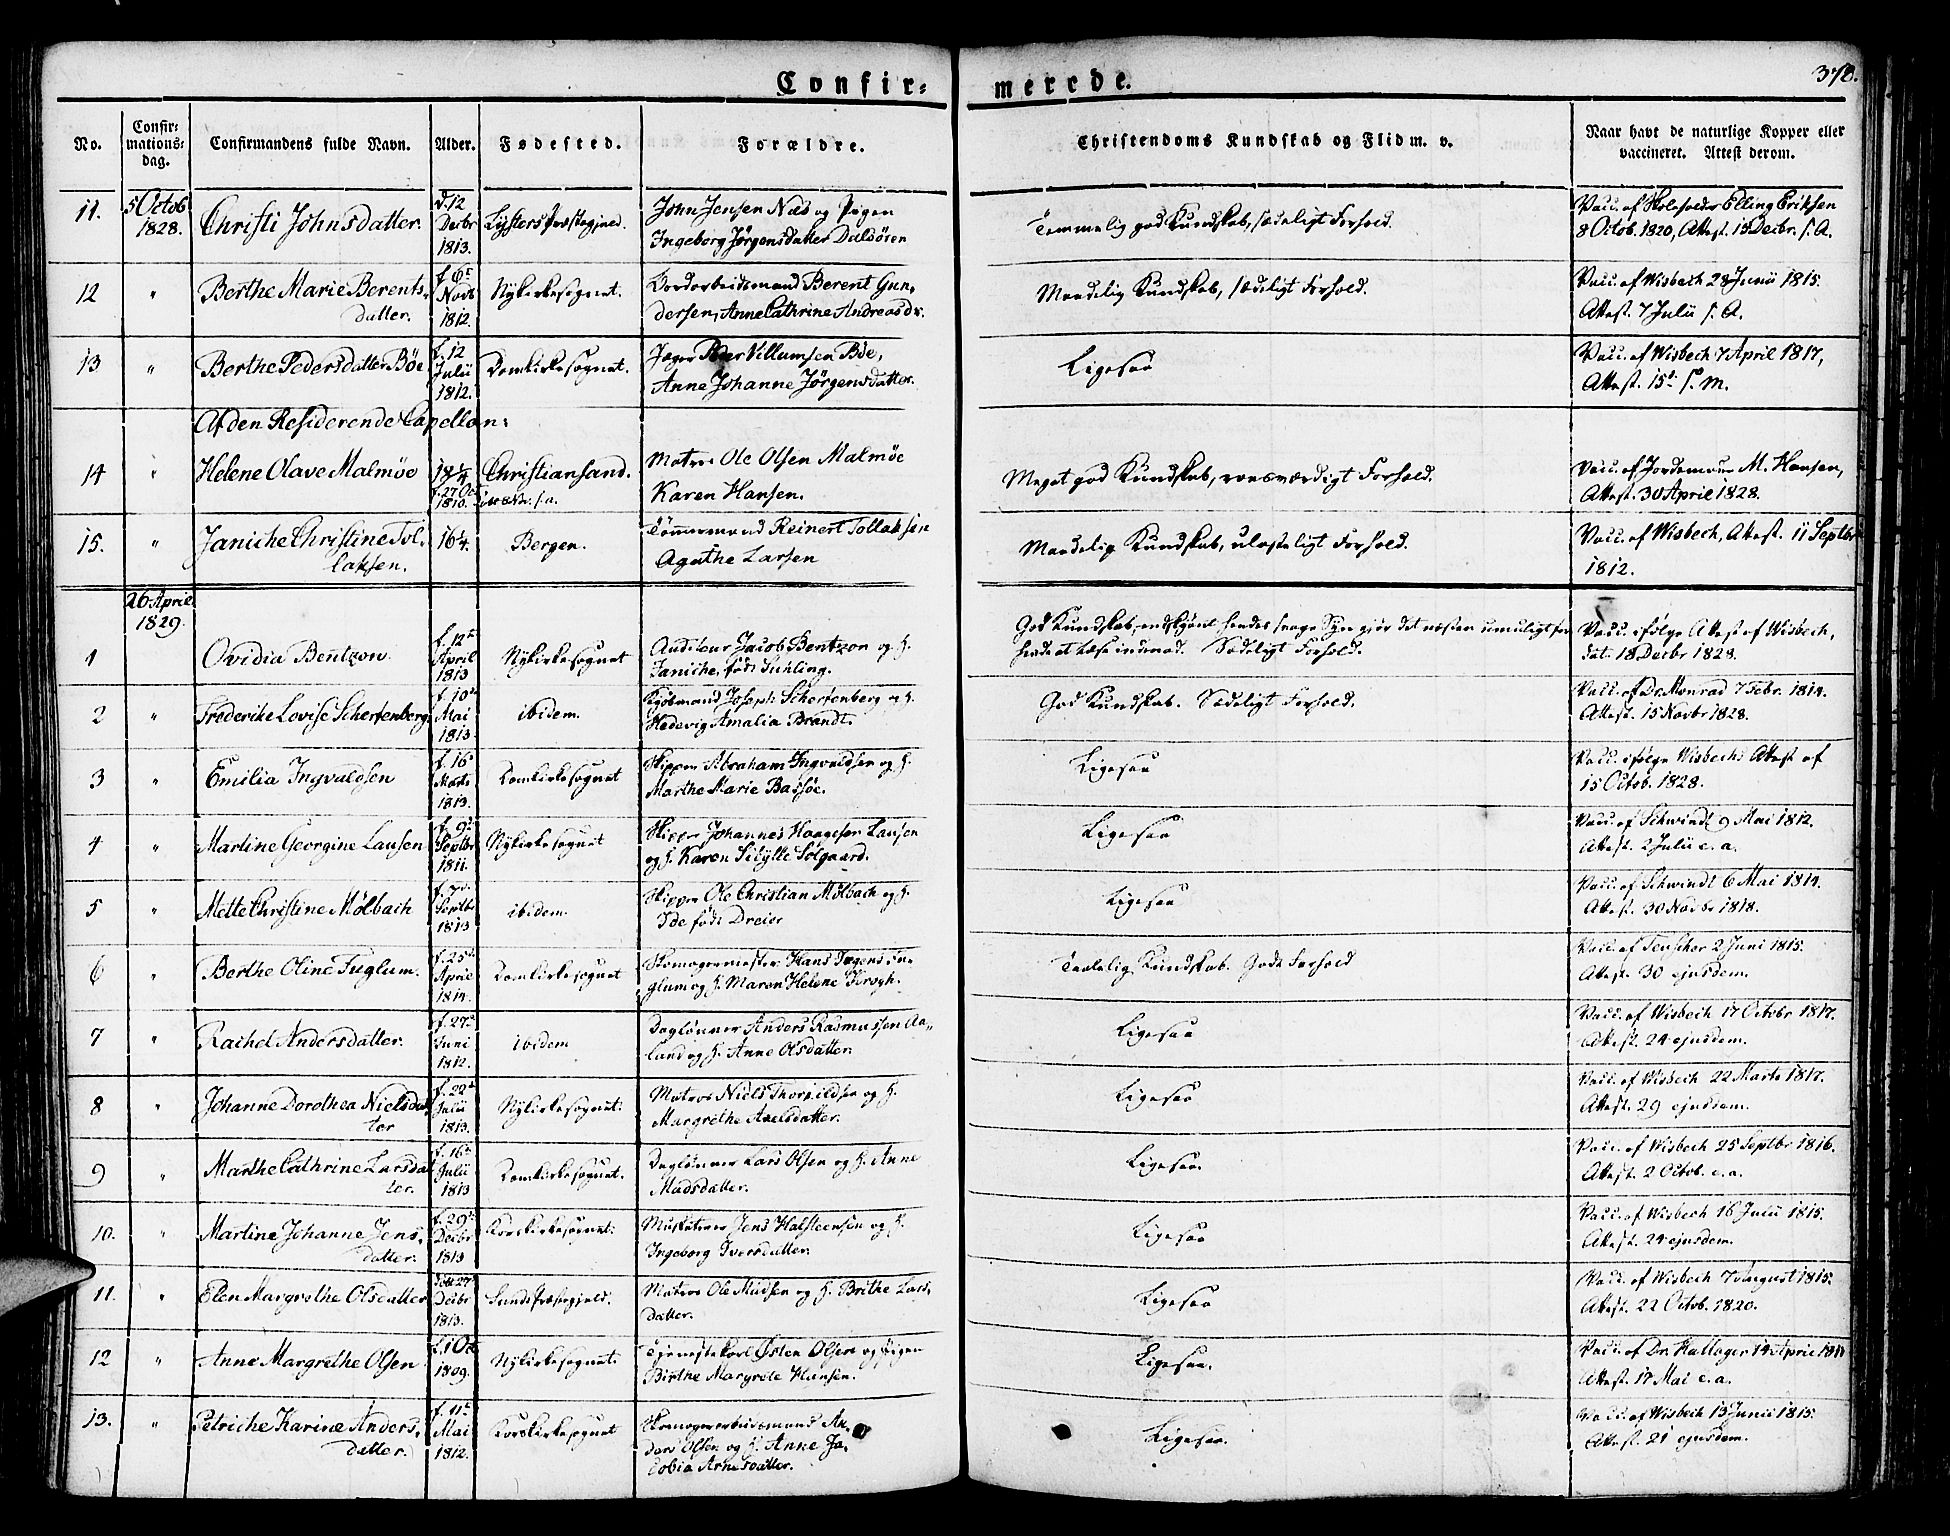 Confir-
merede.
378.
No.
Confir-
mations-
dag.
Confirmandens fulde Navn.
Alder.
Fødested.
Forældre.
Christendoms Kundskab og Flid m. v.
Naar havt de naturlige Kopper eller
vaccineret. Attest derom.
11.
5 Octob
1828.
Christi Johnsdatter.
d. 12
Decbr
1813.
Lysters Præstegjæld.
John Jensen Næs og Pigen
Ingeborg Jørgensdatter Dalsören
Temmelig god Kundskab, sædeligt Forhold.
Vacc. af Skoleholder Elling Eriksen
8 Octob. 1820, Attest. 15 Decbr. s. A.
12
"
Berthe Marie Berents-
datter.
f. 6t
Novb
1812.
Nykirkesognet.
Bordarbeidsmand Berent Gun-
dersen, Anne Cathrine Andreasdr.
Maadelig Kundskab, sædeligt Forhold.
Vacc. af Wisbech 28 Junii 1815.
Attest. 7 Julii s. A.
13
"
Berthe Pedersdatter Böe
f. 12
Julii
1812.
Domkirkesognet.
Jæger Peder Villumsen Böe,
Anne Johanne Jörgensdatter.
Ligesaa
Vacc. af Wisbech 7 April 1817,
Attest. 15t. s. m.
Af den Residerende Capellan:
14
"
Helene Olave Malmöe
18 1/4
f. 27 Oc
1810.
Christiansand.
Matros Ole Olsen Malmöe
Karen Hansen.
Meget god Kundskab, roesværdigt Forhold.
Vacc. af Jordemoder M. Hansen,
Attest. 30 April 1828.
15.
"
Janiche Christine Tol-
laksen.
16 1/4.
Bergen.
Tömmermand Reinert Tollaksen
Agathe Larsen
Maadelig Kundskab, ulasteligt Forhold.
Vacc. af Wisbech, Attest. 11 Septbr
1812.
26 April
1829.
1
Ovidia Bentzon.
f. 12t
April
1813
Nykirkesognet
Auditeur Jacob Bentzon og H.
Janiche, födt Suhling.
God Kundskab, endskjönt hendes svage Syn gjör det næsten umuligt for
hende at læse indenad. Sædeligt Forhold.
Vacc. ifölge Attest af Wisbech,
dat. 18 Decbr 1828.
2
"
Frederike Lovise Scherfenberg
f. 10t
Mai
1813.
ibidem.
Kjöbmand Joseph Scherfenberg og H.
Hedevig Amalia Brandt.
God Kundskab. Sædeligt Forhold.
Vacc. af Dr. Monrad 7 Febr. 1814.
Attest. 15 Novbr 1828.
3
"
Emilia Ingvaldsen
f. 16t
Marts
1813.
Domkirkesognet
Skipper Abraham Ingvaldsen og H.
Marthe Marie Bassöe.
Ligesaa
Vacc. ifölge Wisbechs Attest af
15 Octob. 1828.
4
"
Martine Georgine Lausen
f. 9t
Septbr
1811.
Nykirkesognet
Skipper Johannes Haagesen Lausen
og H. Karen Sibylle Sölgaard.
Ligesaa
Vacc. af Schwindt 9 Mai 1812.
Attest. 2 Julii e. a.
5
"
Mette Christine Mölbach
f. 7de
Septbr
1813
ibidem.
Skipper Ole Christian Mölbach og H.
Ide födt Dreier
Ligesaa
Vacc. af Schwindt 6 Mai 1814.
Attest. 30 Novbr 1818.
6
"
Berthe Oline Fuglum.
f. 25t
April
1814.
Domkirkesognet
Skomagermester Hans Jægens Fu-
glum og H. Maren Helene Krogh.
Taalelig Kundskab. Godt Forhold
Vacc. af Teuscher 2 Juni 1815.
Attest. 30 ejusdem.
7
"
Rachel Andersdatter.
f. 27t
Juni
1812.
ibidem
Daglönner Anders Rasmussen Aa-
land og H. Anne Olsdatter.
Ligesaa
Vacc. af Wisbech 17 Octobr 1817.
Attest. 24 ejusdem.
8
"
Johanne Dorothea Nielsdat
ter
f. 22t
Julii
1813.
Nykirkesognet.
Matros Niels Thorkildsen og H.
Margrethe Axelsdatter.
Ligesaa
Vacc. af Wisbech 22 Marts 1817.
Attest. 29 ejusdem.
9
"
Marthe Cathrine Larsdat
ter.
f. 16t
Julii
1813
Domkirkesognet.
Daglönner Lars Olsen og H. Anne
Madsdatter.
Ligesaa.
Vacc. af Wisbech 25 Septbr 1816.
Attest. 2 Octob. e. a.
10.
"
Martine Johanne Jens-
datter.
f. 29t
Decbr
1813
Korskirkesognet.
Musketerer Jens Halsteensen og H.
Ingeborg Iversdatter.
Ligesaa
Vacc. af Wisbech 16 Julii 1815.
Attest. 24 ejusdem.
11.
"
Elen Margrethe Olsdatter
27
Decbr
1813.
Sunds Præstegjeld.
Matros Ole Madsen og H. Brithe Lars-
datter.
Ligesaa
Vacc. af Wisbech 7 August 1815.
Attest. 22 Octob. 1820.
12
"
Anne Margrethe Olsen
1809.
Nykirkesognet.
Tjenestekarl Östen Olsen og Pigen
Birthe Margrete Hansen.
Ligesaa.
Vacc. af Dr. Kallager 14 April 181
Attest. 17 Mai e. a.
13.
"
Petriche Karine Anders-
datter.
f. 11t
Mai
1812.
Korskirkesognet
Skomagerarbeidsmand An-
ders Olsen og H. Anne Ja-
cobia Arnesdatter.
Ligesaa.
Vacc. af Wisbech 13 Junii 1815.
Attest. 21 ejusdem.